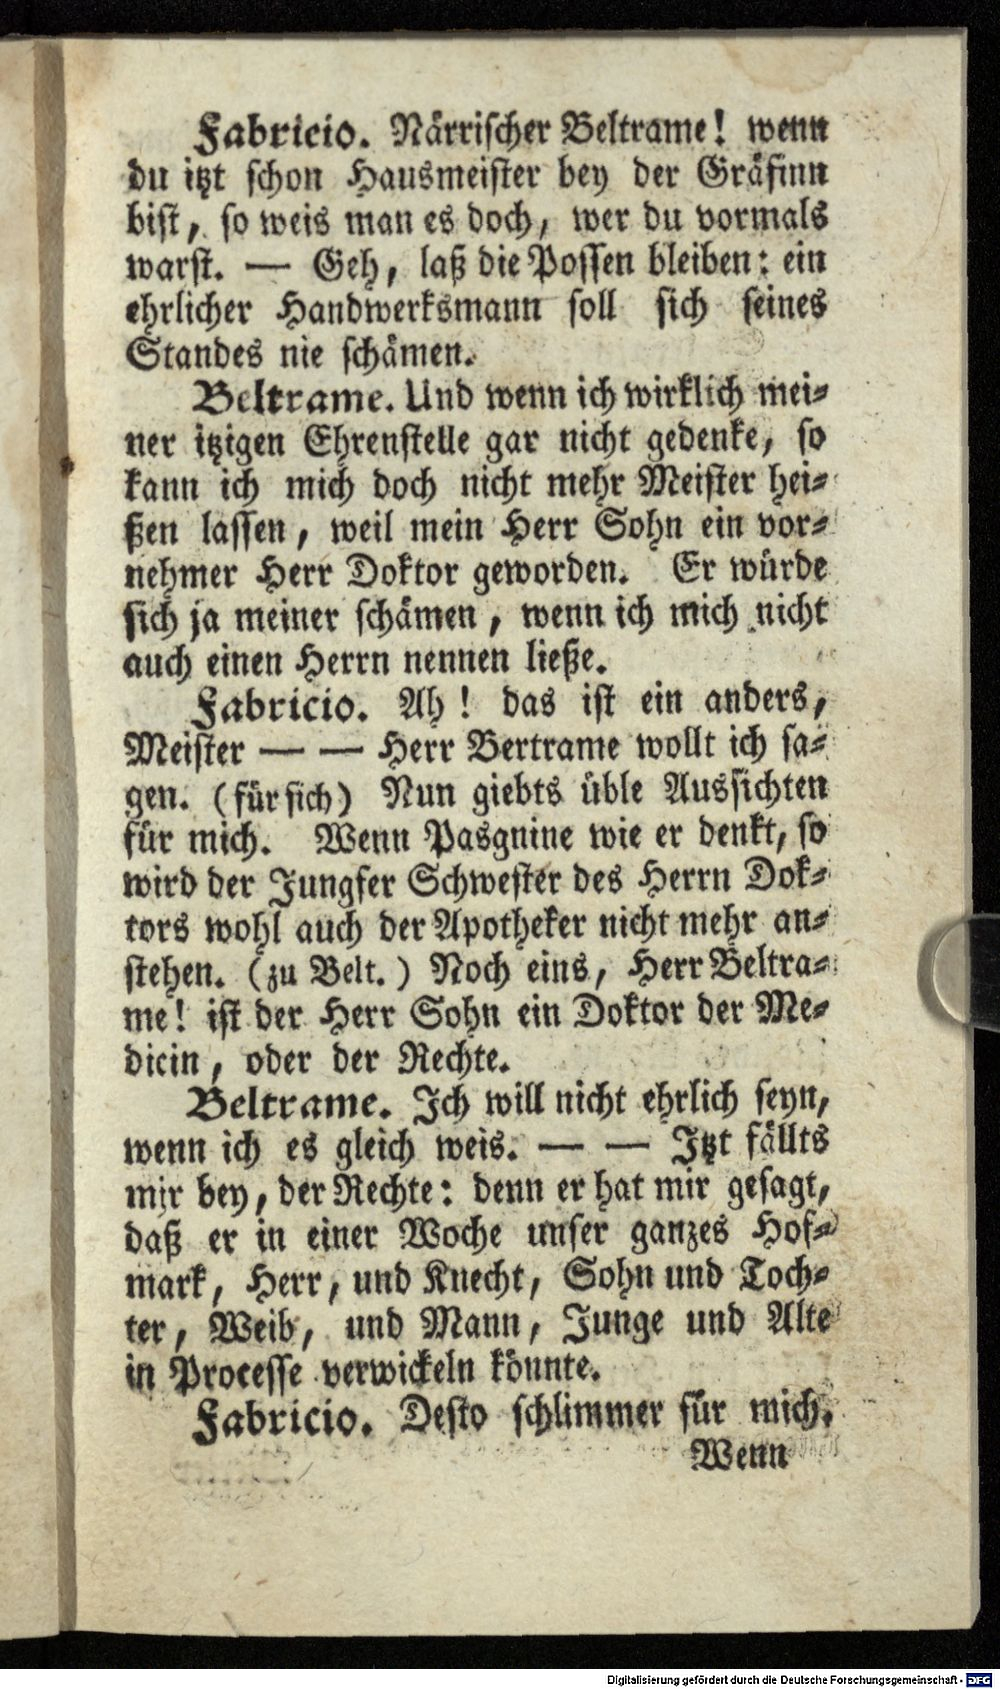 Fabricio. Närrischer Beltrame! wenn
du itzt schon Hausmeister bey der Gräfinn
bist, so weis man es doch, wer du vormals
warst. — Geh, laß die Possen bleiben: ein
ehrlicher Handwerksmann soll sich seines
Standes nie schämen.
Beltrame. Und wenn ich wirklich mei-
ner itzigen Ehrenstelle gar nicht gedenke, so
kann ich mich doch nicht mehr Meister hei-
ßen lassen, weil mein Herr Sohn ein vor-
nehmer Herr Doktor geworden. Er würde
sich ja meiner schämen, wenn ich mich nicht
auch einen Herrn nennen ließe.
Fabricio. Ah! das ist ein anders,
Meister — — Herr Bertrame wollt ich sa-
gen. (für sich) Nun giebts üble Aussichten
für mich. Wenn Pasgnine wie er denkt, so
wird der Jungfer Schwester des Herrn Dok-
tors wohl auch der Apotheker nicht mehr an-
stehen. (zu Belt.) Noch eins, Herr Beltra-
me! ist der Herr Sohn ein Doktor der Me-
dicin, oder der Rechte.
Beltrame. Ich will nicht ehrlich seyn,
wenn ich es gleich weis. — — Itzt fällts
mir bey, der Rechte: denn er hat mir gesagt,
daß er in einer Woche unser ganzes Hof-
mark, Herr, und Knecht, Sohn und Toch-
ter, Weib, und Mann, Junge und Alte
in Processe verwickeln könnte.
Fabricio. Desto schlimmer für mich.
Wenn
Digitalisierung gefördert durch die Deutsche Forschungsgemeinschaft - DFG